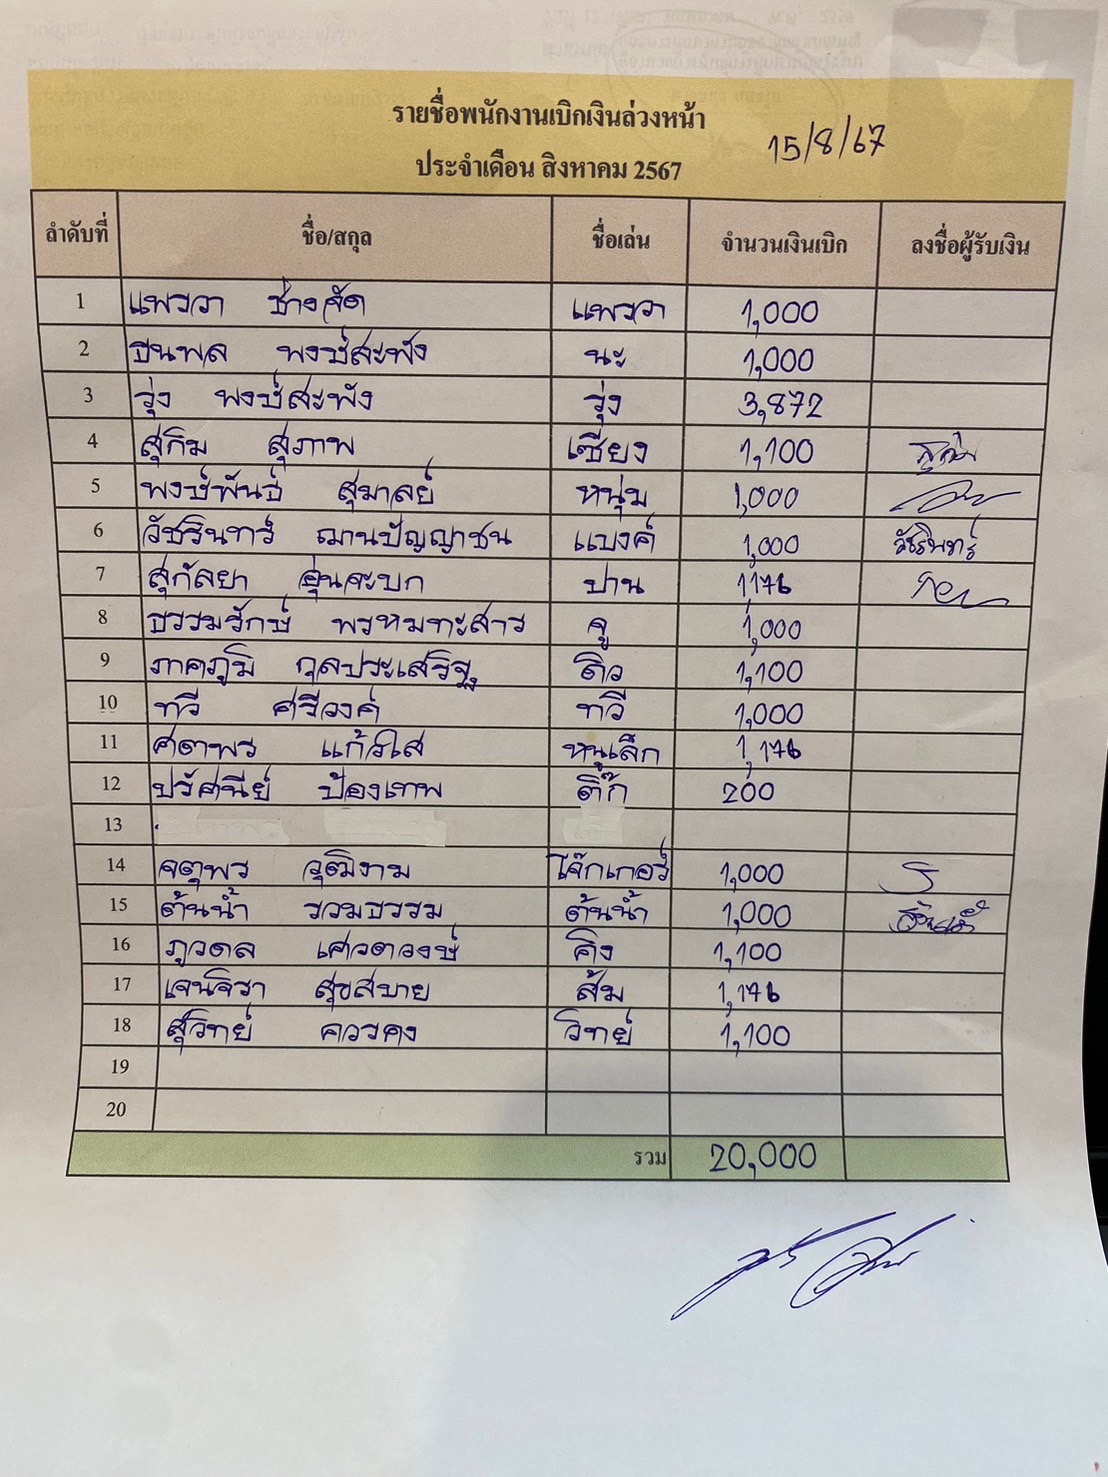 รายชื่อพนักงานเบิกเงินล่วงหน้า
15/8/67
ประจำเดือน สิงหาคม 2567
ลำดับที่ ชื่อ/สกุล ชื่อเล่น จำนวนเงินเบิก ลงชื่อผู้รับเงิน
1 แพรวา ช่างจัด แพรวา 1,000
2 ธนพล พงษ์สะพัง นะ 1,000
3 รุ่ง พงษ์สะพัง รุ่ง 3,872
4 สุกิม สุภาพ เซียง 1,100
5 พงษ์พันธ์ สุมาลย์ หนุ่ม 1,000
6 วัชรินทร์ ฌานปัญญาชน แบงค์ 1,000 วัชรินทร์
7 สุกัลยา อุ่นจะบก ปาน 1176
8 ธรรมรักษ์ พรหมทะสาร จู 1,000
9 ภาคภูมิ กุลประเสริฐ ดิว 1,100
10 ทวี ศรีวงค์ ทวี 1,000
11 ศตพร แก้วใส หนูเล็ก 1,176
12 ปรัศนีย์ ป้องเทพ ติ๊ก 200
13
14 จตุพร วุฒิงาม โจ๊กเกอร์ 1,000
15 ต้นน้ำ รวมธรรม ต้นน้ำ 1,000 ต้นน้ำ
16 ภูวดล เศวตวงษ์ คิง 1,100
17 เจนจิรา สุขสบาย ส้ม 1,176
18 สุวิทย์ ควรคง วิทย์ 1,100
19
20
รวม 20,000